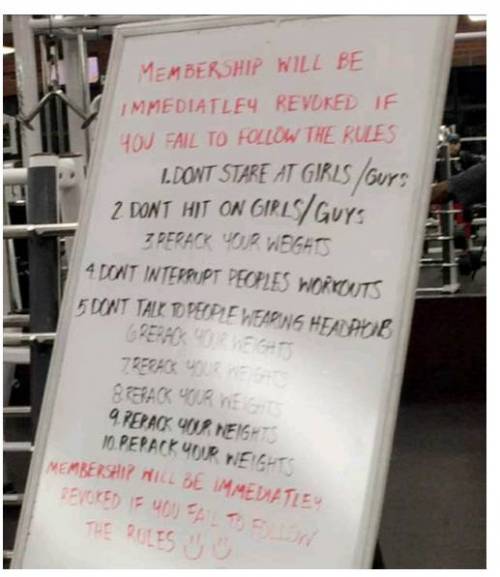 MEMBERSHIP WILL BE
IMMEDIATLEY REVOKED IF
YOU FAIL TO FOLLOW THE RULES
1. DONT STARE AT GIRLS/GUYS
2 DONT HIT ON GIRLS/GUYS
3. RERACK YOUR WEIGHTS
4. DONT INTERRUPT PEOPLES WORKOUTS
5 DONT TALK TO PEOPLE WEARING HEADPHONES
6 RERACK YOUR WEIGHTS
7. RERACK YOUR WEIGHTS
8. RERACK YOUR WEIGHTS
9. RERACK YOUR WEIGHTS
10. RERACK YOUR WEIGHTS
MEMBERSHIP WILL BE IMMEDIATLEY
REVOKED IF YOU FAIL TO FOLLOW
THE RULES